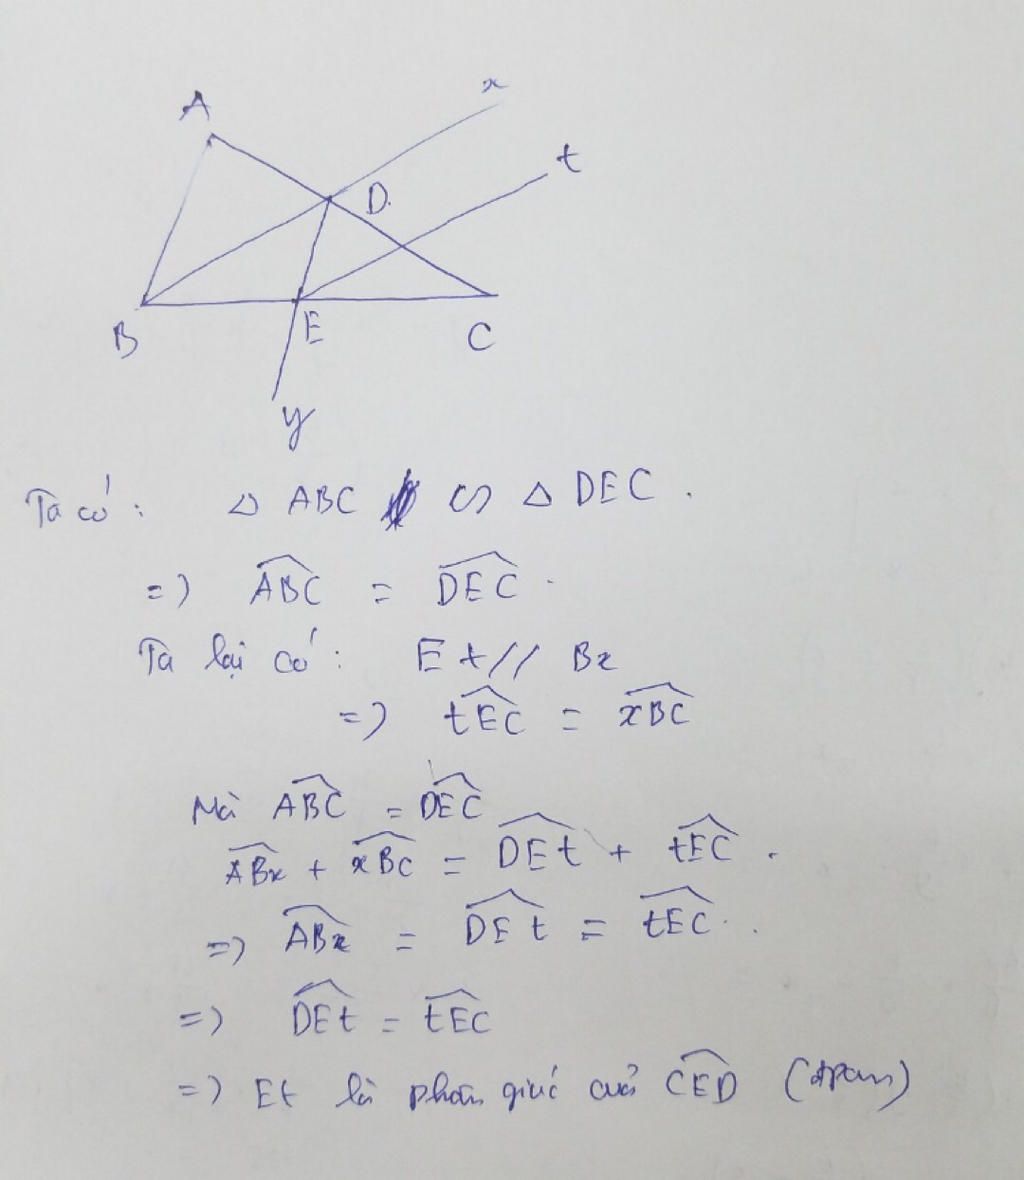 A
x
t
D.
B
E
C
y
Ta có: △ ABC ∽ △ DEC.
=) \widehat{ABC} = \widehat{DEC}.
Ta lại có: Et // Bx
=) \widehat{tEC} = \widehat{xBC}
Mà \widehat{ABC} = \widehat{DEC}
\widehat{ABx} + \widehat{xBC} = \widehat{DEt} + \widehat{tEC}.
=) \widehat{ABx} = \widehat{DEt} = \widehat{tEC}.
=) \widehat{DEt} = \widehat{tEC}
=) Et là phân giác của \widehat{CED} (đpcm)